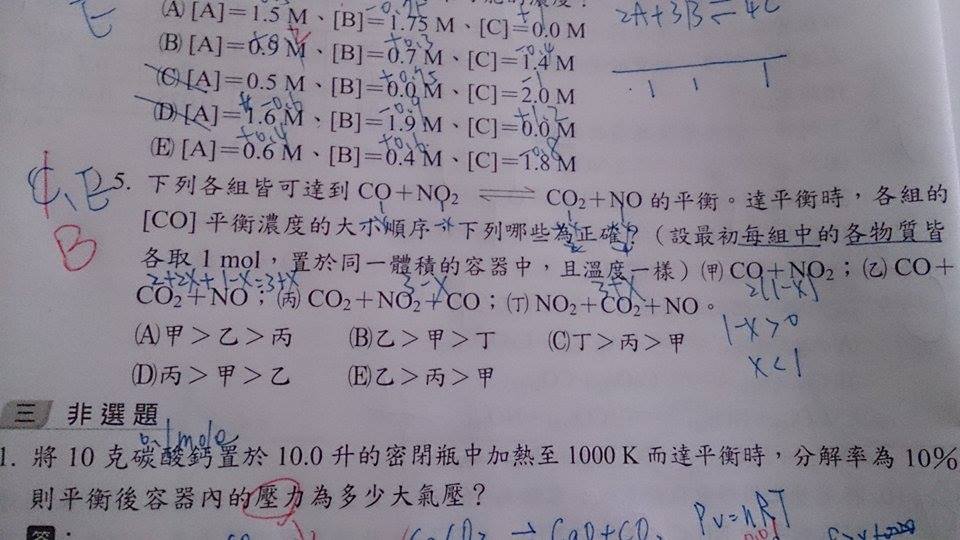 (A) [A]=1.5 M、[B]=1.75 M、[C]=0.0 M
2A+3B⇌4C
(B) [A]=0.9 M、[B]=0.7 M、[C]=1.4 M
(C) [A]=0.5 M、[B]=0.0 M、[C]=2.0 M
(D) [A]=1.6 M、[B]=1.9 M、[C]=0.0 M
(E) [A]=0.6 M、[B]=0.4 M、[C]=1.8 M
E
C、E
B
5. 下列各組皆可達到 CO+NO₂ ⇌ CO₂+NO 的平衡。達平衡時,各組的
[CO] 平衡濃度的大小順序,下列哪些為正確?(設最初每組中的各物質皆
各取 1 mol,置於同一體積的容器中,且溫度一樣)(甲) CO+NO₂;(乙) CO+
2+2x+1-x=3+x
3-x
3+x
2(1-x)
CO₂+NO;(丙) CO₂+NO₂+CO;(丁) NO₂+CO₂+NO。
1-x>0
x<1
(A)甲>乙>丙 (B)乙>甲>丁 (C)丁>丙>甲
(D)丙>甲>乙 (E)乙>丙>甲
三 非選題
0.1mole
1. 將 10 克碳酸鈣置於 10.0 升的密閉瓶中加熱至 1000 K 而達平衡時,分解率為 10%
則平衡後容器內的壓力為多少大氣壓?
答:
PV=nRT